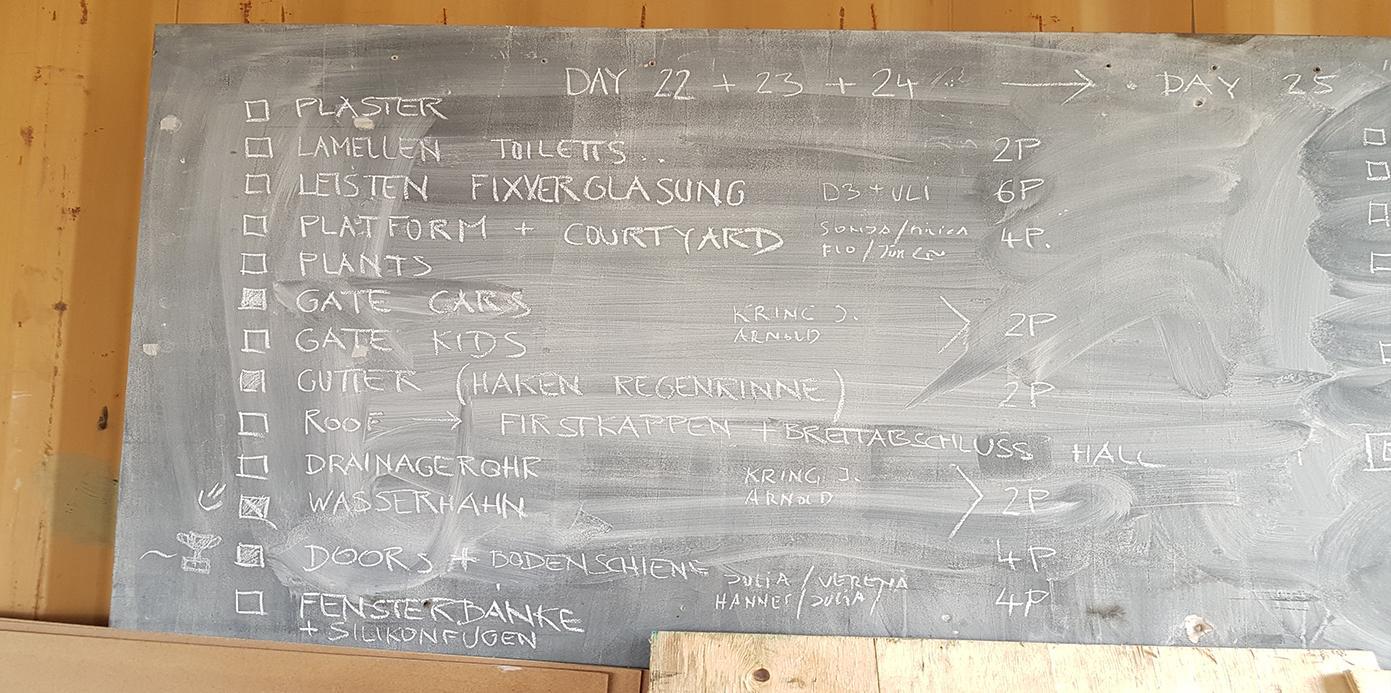 DAY 22 + 23 + 24 → DAY 25
PLASTER
LAMELLEN TOILETTS.. 2P
LEISTEN FIXVERGLASUNG D3 + ULI 6P
PLATFORM + COURTYARD SONJA / 4P.
FLO /
PLANTS
GATE CARS KRING J.
GATE KIDS ARNOLD 2P
GUTTER (HAKEN REGENRINNE) 2P
ROOF → FIRSTKAPPEN + BRETTABSCHLUSS HALL
DRAINAGEROHR KRING J.
WASSERHAHN ARNOLD 2P
DOORS + BODENSCHIENE 4P
JULIA / VERENA
FENSTERBÄNKE HANNES / JULIA / 4P
+ SILIKONFUGEN